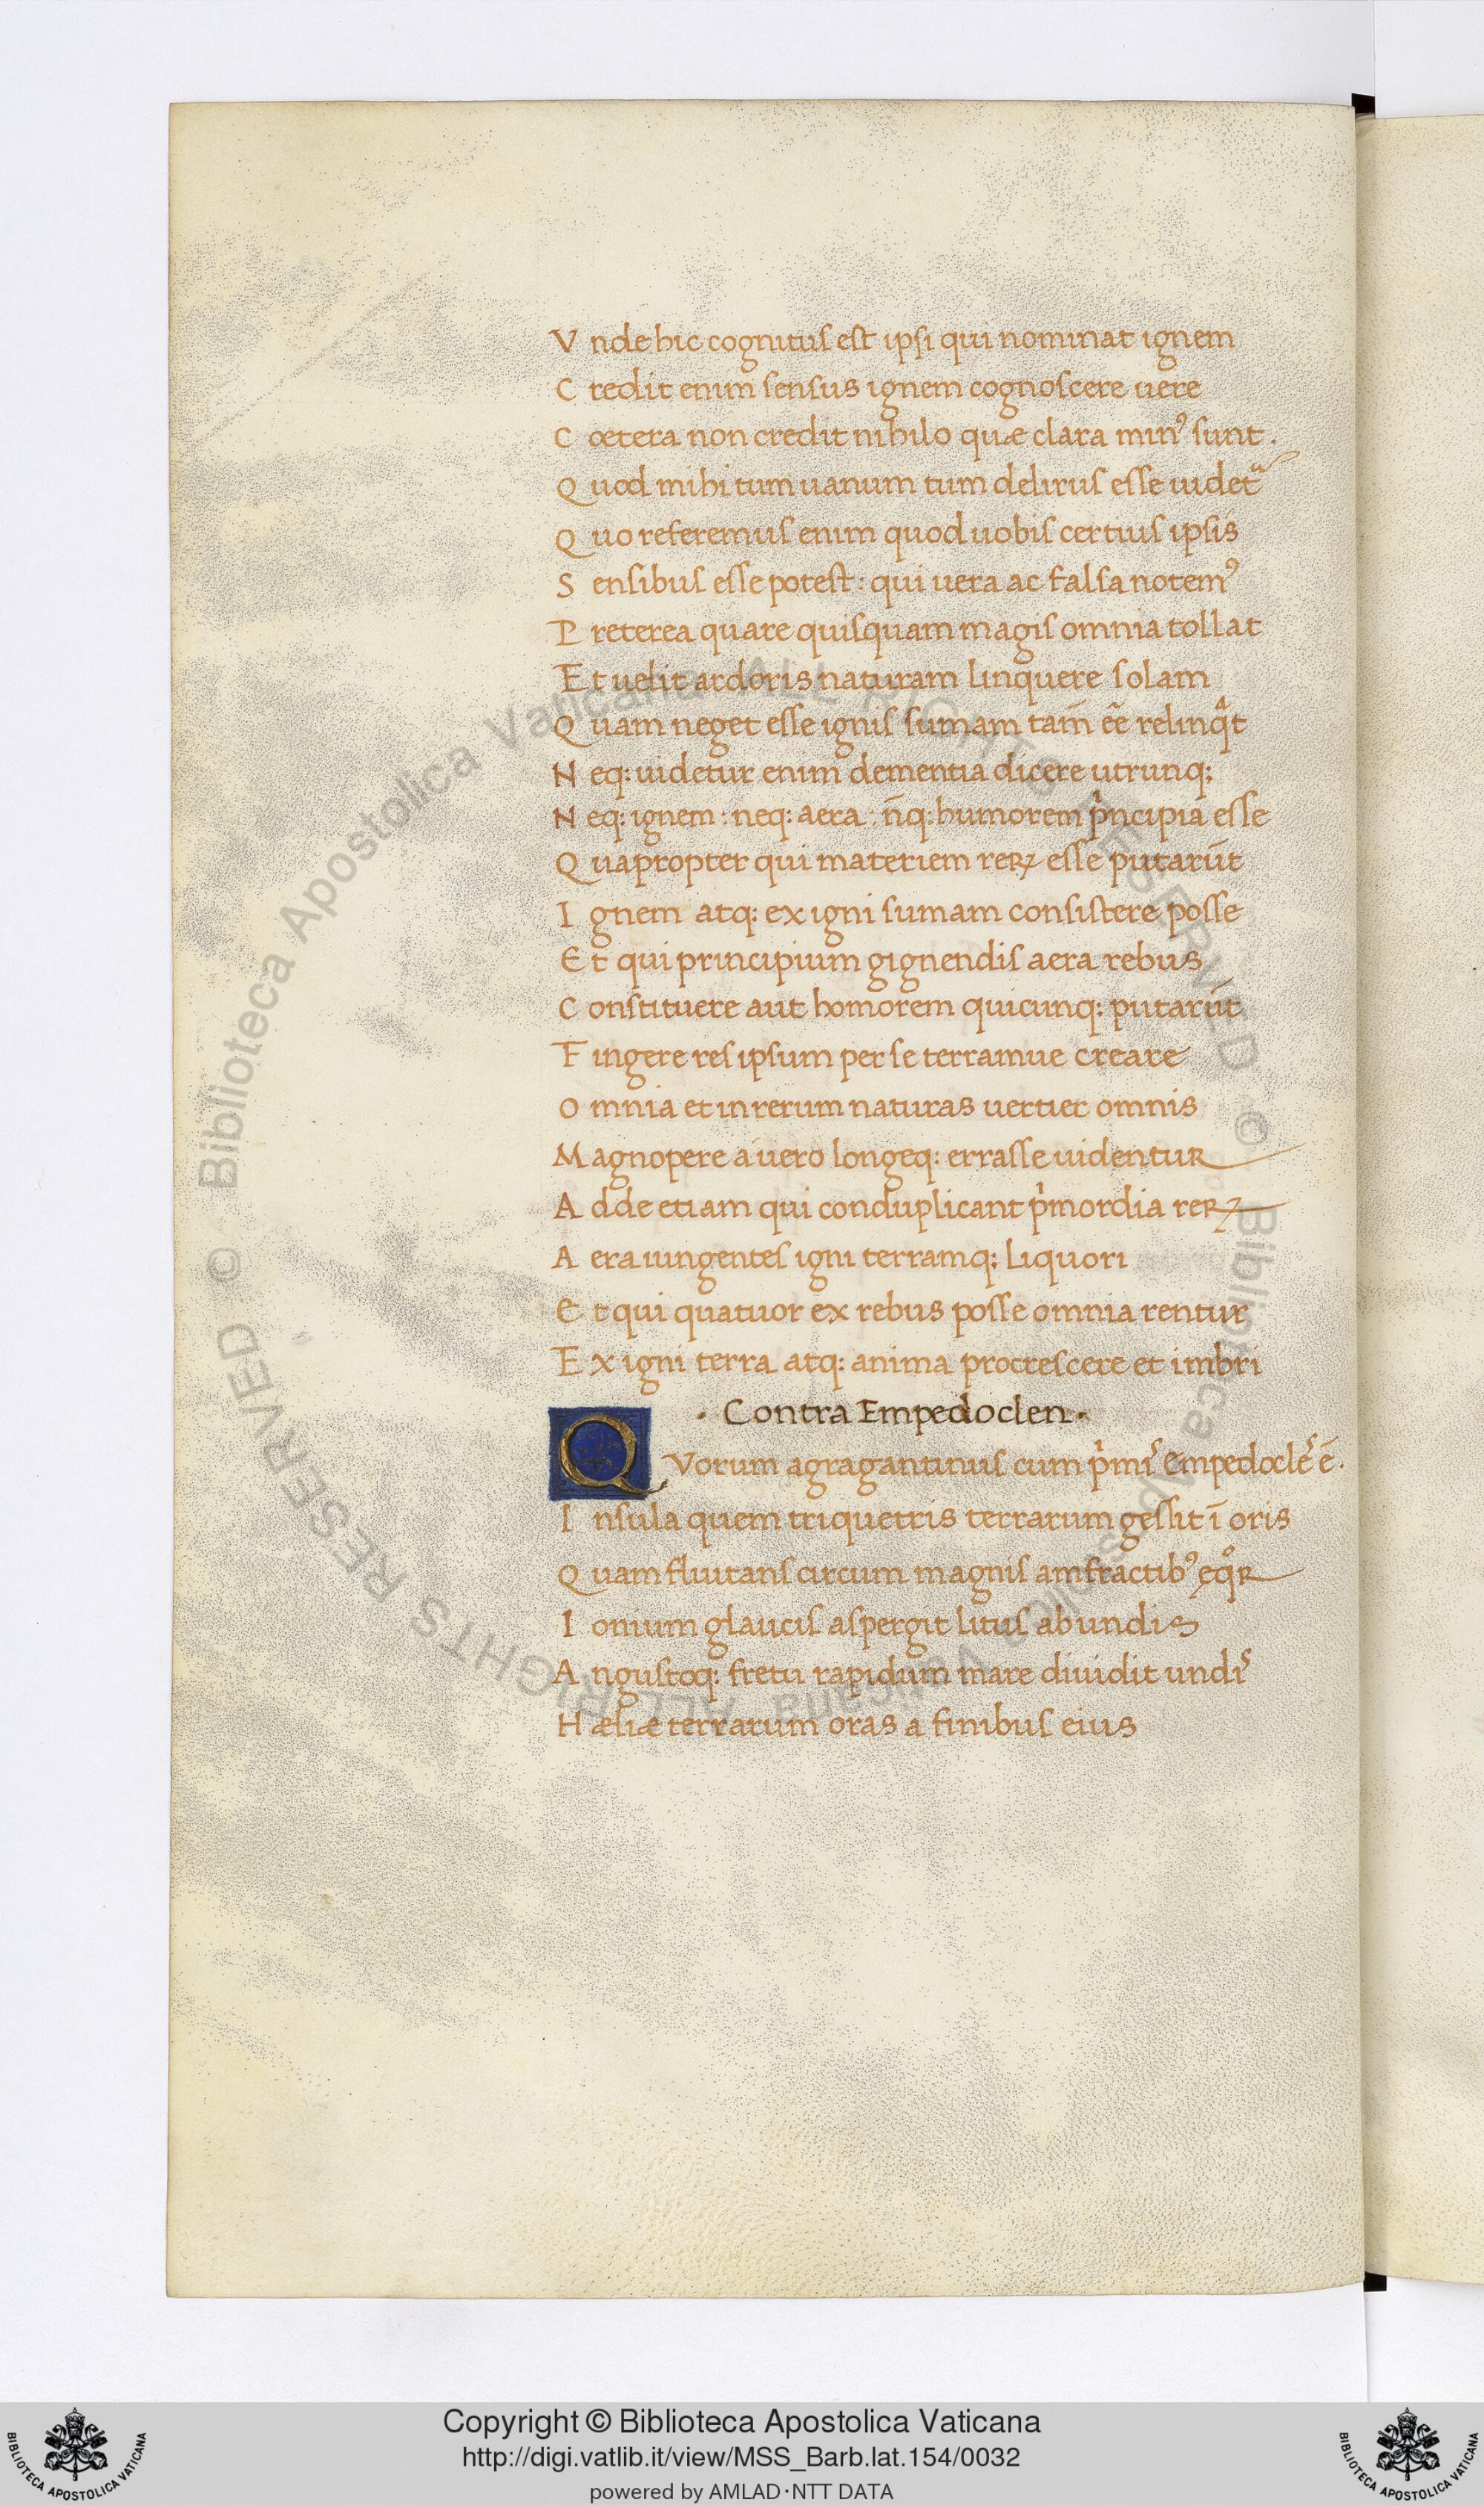 V nde hic cognitus est ipsi qui nominat ignem
C redit enim sensus ignem cognoscere uere
C oetera non credit nihilo quæ clara minꝰ sunt.
Q uod mihi tum uanum tum delirus esse uidetᷓ
Q uo referemus enim quod uobis certius ipsis
S ensibus esse potest: qui uera ac falsa notemꝰ
P reterea quare quisquam magis omnia tollat
E t uelit ardoris naturam linquere solam
Q uam neget esse ignis sumam tam̄ eē relinqᷓt
N eq: uidetur enim dementia dicere utrunq;
N eq: ignem: neq: aera: n̄q: humorem pͥncipia esse
Q uapropter qui materiem reꝝ esse putarūt
I gnem atq: ex igni sumam consistere posse
E t qui principium gignendis aera rebus
C onstituere aut homorem quicunq: putarūt
F ingere res ipsum per se terramue creare
O mnia et in rerum naturas uertier omnis
M agnopere a uero longeq: errasse uidentur
A dde etiam qui conduplicant pͥmordia reꝝ
A era iungentes igni terramq; liquori
E t qui quatuor ex rebus posse omnia rentur
E x igni terra atq: anima procrescere et imbri
· Contra Empedoclen ·
QVorum agragantinus cum pͥmiˢ Empedocleˢ ē.
I nsula quem triquetris terrarum gessit ī oris
Q uam fluitans circum magnis amfractibꝰ ęqͦr
I onium glaucis aspergit litus ab undis
A ngustoq: fretu rapidum mare diuidit undiˢ
H æliæ terrarum oras a finibus eius
© Biblioteca Apostolica Vaticana ALL RIGHTS RESERVED © Biblioteca Apostolica Vaticana ALL RIGHTS RESERVED
Copyright © Biblioteca Apostolica Vaticana
http://digi.vatlib.it/view/MSS_Barb.lat.154/0032
powered by AMLAD·NTT DATA
BIBLIOTECA APOSTOLICA VATICANA
BIBLIOTECA APOSTOLICA VATICANA